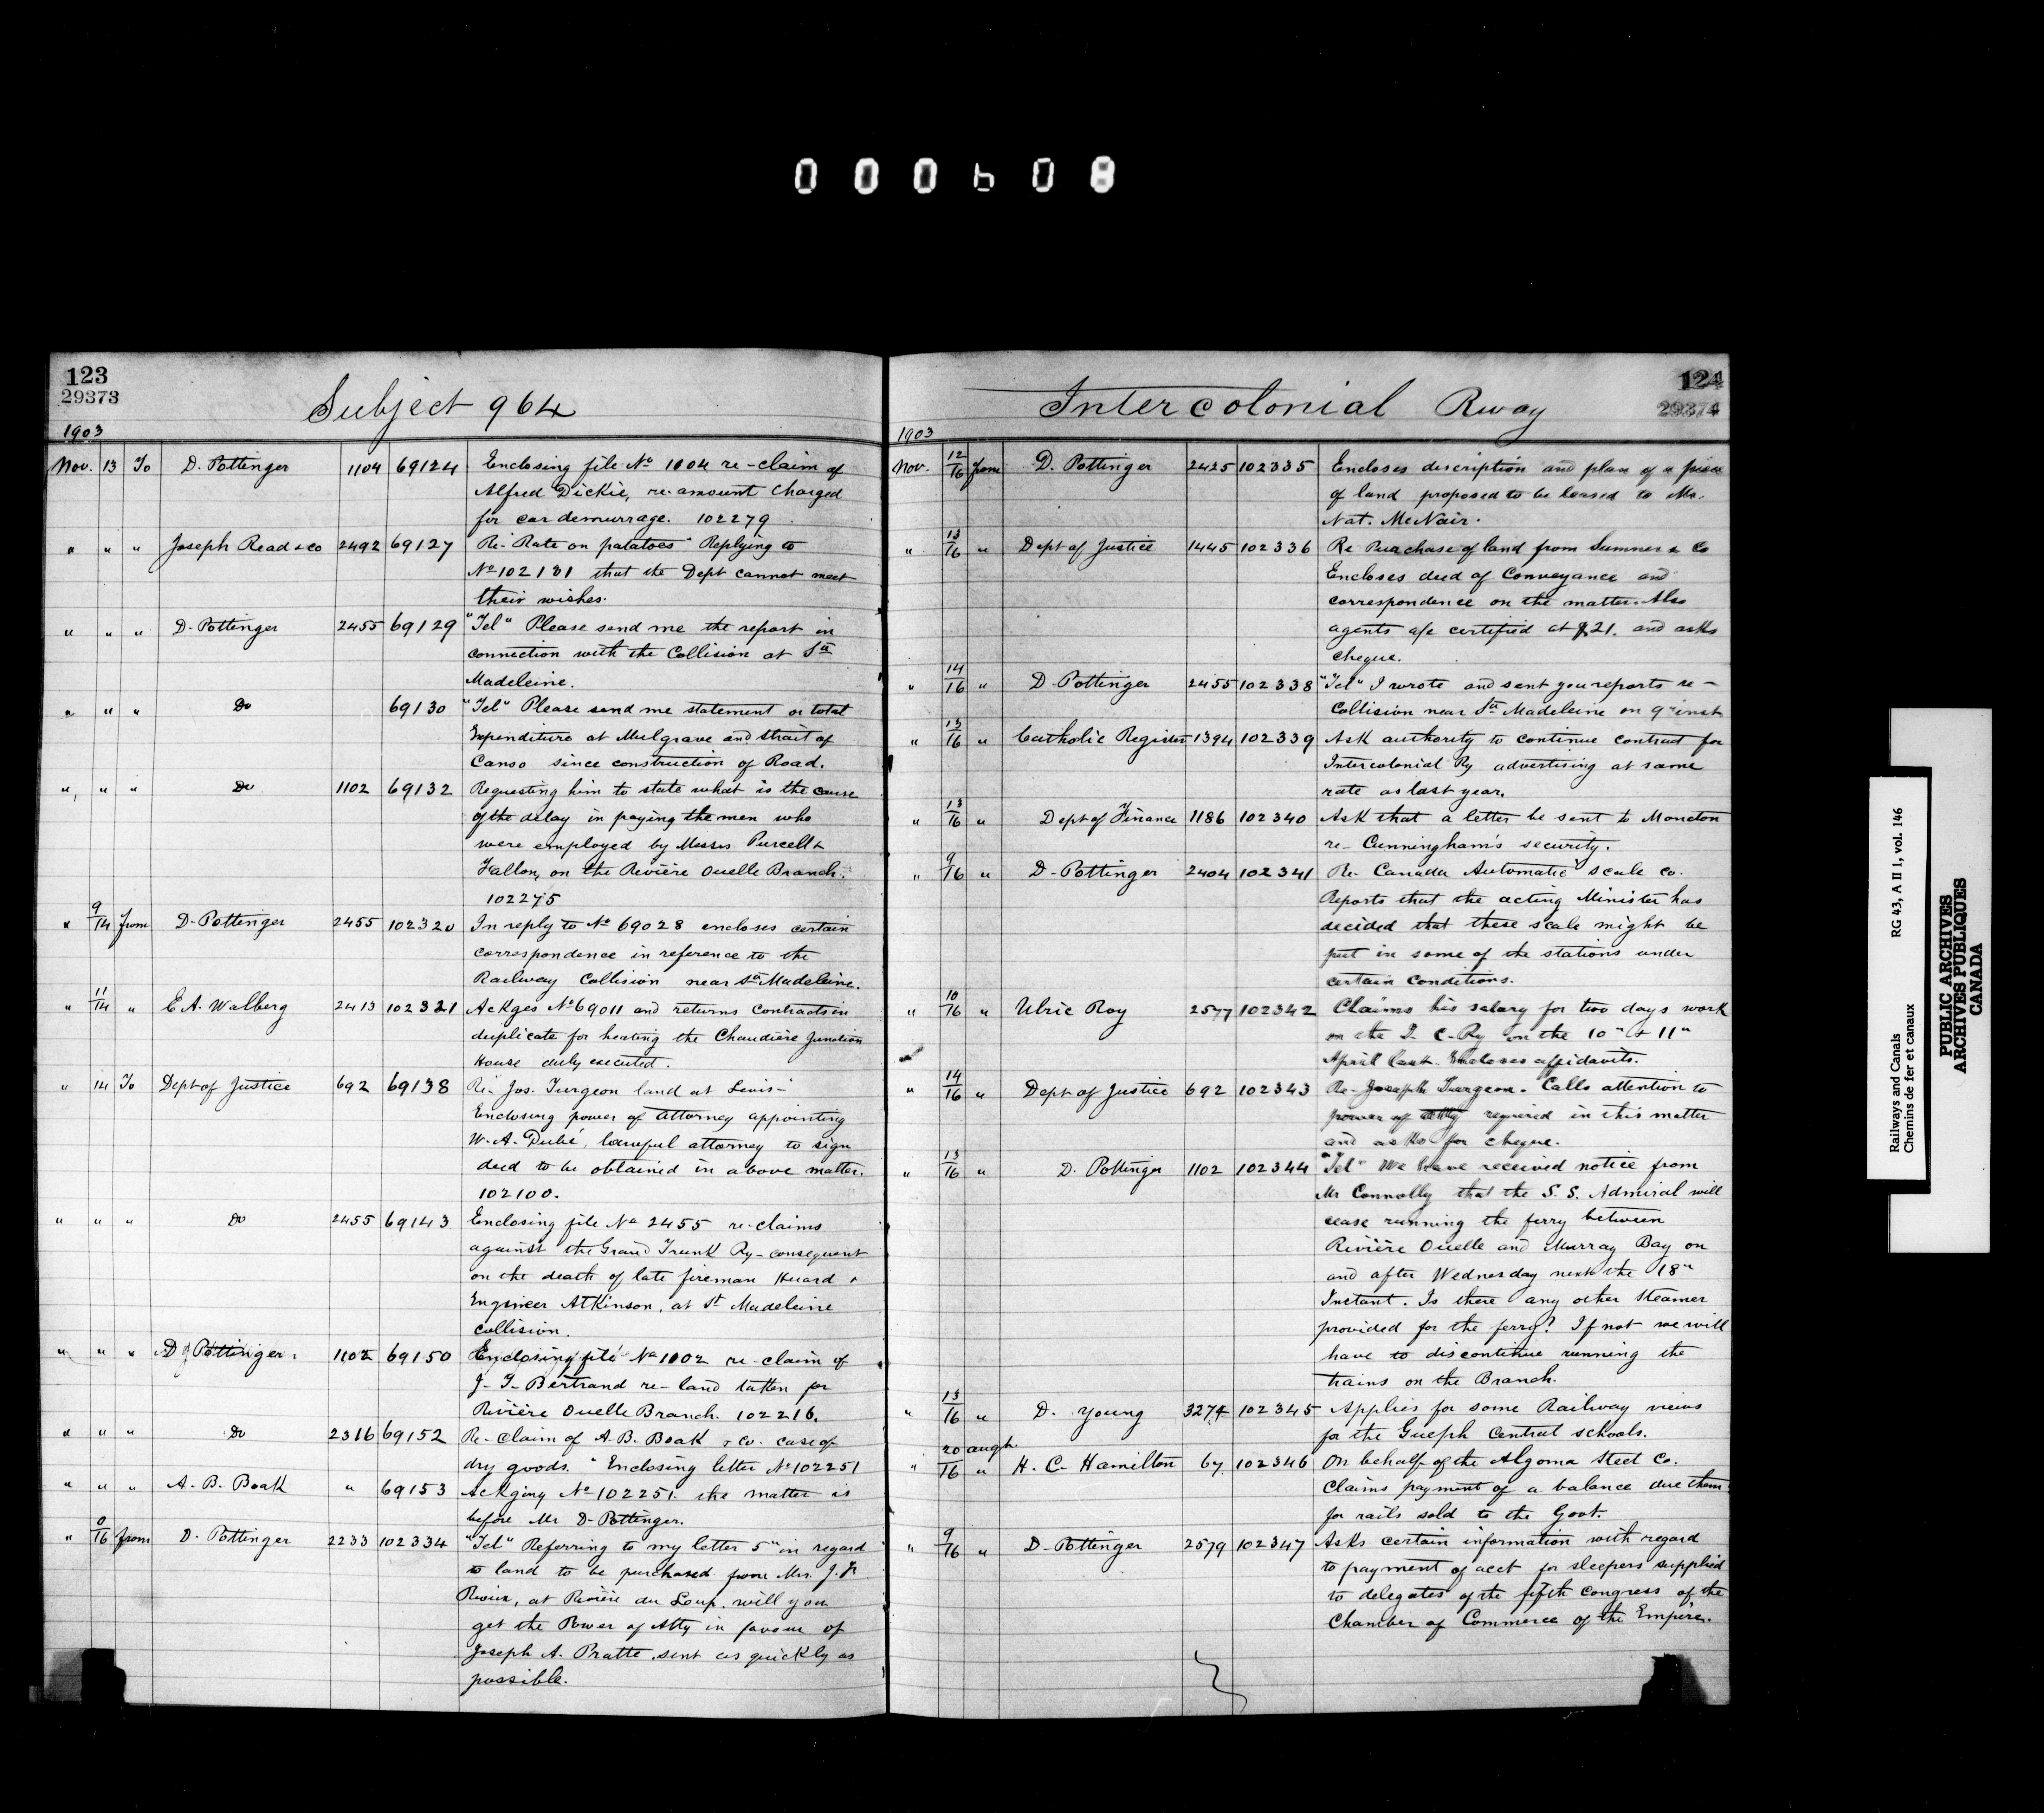 000608
123
29373
Subject 964
1903
Nov. 13 To D. Pottinger 1104 69124 Enclosing file No 1104 re-claim of
Alfred Dickie, re-amount charged
for car demurrage. 102279
" " " Joseph Read & Co 2492 69127 Re- Rate on patatoes" Replying to
No 102131 that the Dept cannot meet
their wishes.
" " " D. Pottinger 2455 69129 "Tel" Please send me the report in
connection with the Collision at Ste
Madeleine.
" " " Do 69130 "Tel" Please send me statement or total
Expenditure at Mulgrave and Strait of
Canso since construction of Road.
" " " Do 1102 69132 Requesting him to state what is the cause
of the delay in paying the men who
were employed by Messrs Purcell &
Fallon, on the Rivière Ouelle Branch.
102275
" 9/14 from D. Pottinger 2455 102320 In reply to No 69028 encloses certain
correspondence in reference to the
Railway Collision near Ste Madeleine.
" 11/14 " E A. Walberg 2413 102321 Ackges No 69011 and returns contracts in
duplicate for heating the Chaudière Junction
House duly executed.
" 14 To Dept of Justice 692 69138 Re- Jos. Turgeon land at Levis-
Enclosing power of attorney appointing
W. A. Dubé, lawful attorney to sign
deed to be obtained in above matter.
102100.
" " " Do 2455 69143 Enclosing file No 2455 re-claims
against the Grand Trunk Ry-consequent
on the death of late fireman Huard &
Engineer Atkinson, at St Madeleine
collision.
" " " D. Pottinger. 1102 69150 Enclosing file No 1102 re-claim of
J- T- Bertrand re- land taken for
Rivière Ouelle Branch. 102216.
" " " Do 2316 69152 Re- Claim of A. B. Boak & Co. case of
dry goods. " Enclosing letter No 102251
" " " A. B. Boak " 69153 Ackging No 102251. the matter is
before Mr D- Pottinger.
" 0/16 from D. Pottinger 2233 102334 "Tel" Referring to my letter 5" on regard
to land to be purchased from Mrs. J.
at Rivière du Loup. will you
get the Power of Atty in favour of
Joseph A. Pratte sent as quickly as
possible.
Intercolonial Rway
124
29374
1903
Nov. 12/16 from D. Pottinger 2425 102335 Encloses discription and plan of a piece
of land proposed to be leased to Mr.
Nat. McNair.
" 13/16 " Dept of Justice 1445 102336 Re Purchase of land from Sumner & Co
Encloses deed of Conveyance and
correspondence on the matter. Also
agents a/c certified at $21. and asks
cheque.
" 14/16 " D Pottinger 2455 102338 "Tel" I wrote and sent you reports re-
Collision near Ste Madeleine on 9" inst
" 13/16 " Catholic Register 1394 102339 Ask authority to continue contract for
Intercolonial Ry advertising at same
rate as last year.
" 13/16 " Dept of Finance 1186 102340 Ask that a letter be sent to Moncton
re- Cunningham's security.
" 9/16 " D- Pottinger 2404 102341 Re- Canada Automatic scale co.
Reports that the acting Minister has
decided that these scale might be
put in some of the stations under
certain Conditions.
" 10/16 " Ulric Roy 2577 102342 Claims his salary for two days work
on the I. C- Ry on the 10" & 11"
April last. Encloses affidavits.
" 14/16 " Dept of Justice 692 102343 Re- Joseph Turgeon. Calls attention to
power of atty required in this matter
and asks for cheque.
" 13/16 " D. Pottinger 1102 102344 "Tel" We have received notice from
Mr Connolly that the S. S. Admiral will
cease running the ferry between
Rivière Ouelle and Murray Bay on
and after Wednesday next the 18"
Instant. Is there any other Steamer
provided for the ferry? If not we will
have to discontinue running the
trains on the Branch.
" 13/16 " D. Young 3274 102345 Applies for some Railway views
for the Guelph Central schools.
" 20 augt./16 " H. C. Hamilton 67 102346 On behalf of the Algoma Steel Co.
Claims payment of a balance due them
for rails sold to the Govt.
" 9/16 " D- Pottinger 2579 102347 Asks certain information with regard
to payment of acct for sleepers supplied
to delegates of the fifth Congress of the
Chamber of Commerce of the Empire.
Railways and Canals RG 43, A II 1, vol. 146
Chemins de fer et canaux
PUBLIC ARCHIVES
ARCHIVES PUBLIQUES
CANADA